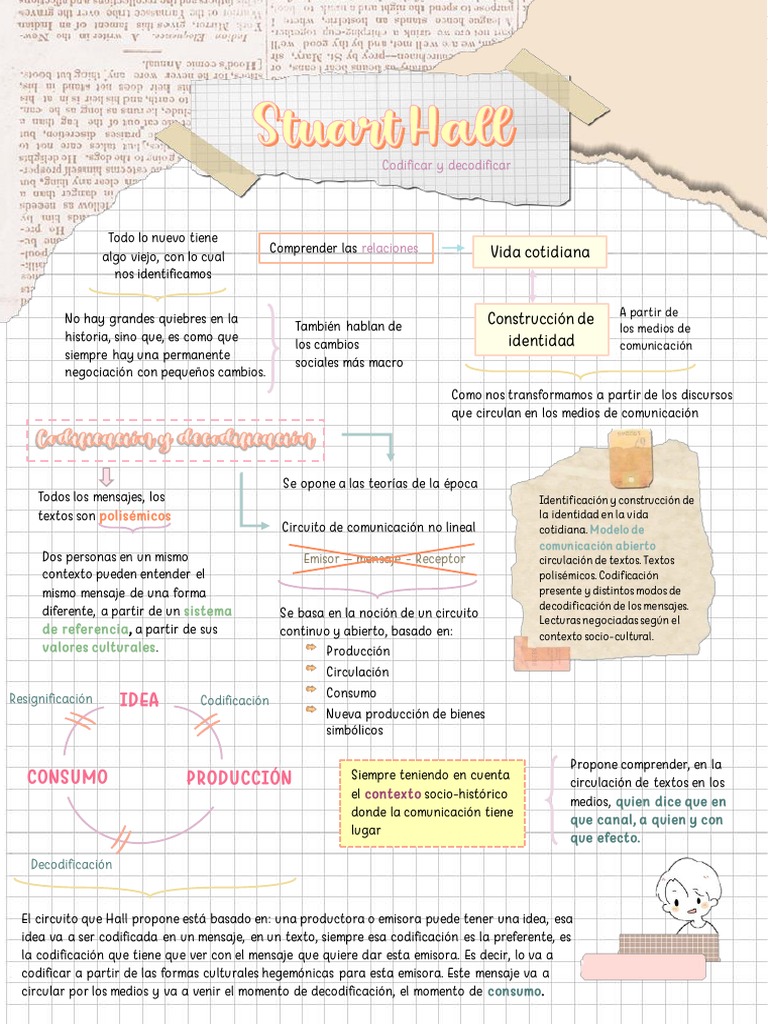 Stuart Hall
Codificar y decodificar
Todo lo nuevo tiene
algo viejo, con lo cual
nos identificamos
No hay grandes quiebres en la
historia, sino que, es como que
siempre hay una permanente
negociación con pequeños cambios.
También hablan de
los cambios
sociales más macro
Comprender las relaciones
Vida cotidiana
Construcción de
identidad
A partir de
los medios de
comunicación
Como nos transformamos a partir de los discursos
que circulan en los medios de comunicación
Codificación y decodificación
Todos los mensajes, los
textos son polisémicos
Dos personas en un mismo
contexto pueden entender el
mismo mensaje de una forma
diferente, a partir de un sistema
de referencia, a partir de sus
valores culturales.
Se opone a las teorías de la época
Circuito de comunicación no lineal
Emisor – mensaje - Receptor
Se basa en la noción de un circuito
continuo y abierto, basado en:
Producción
Circulación
Consumo
Nueva producción de bienes
simbólicos
Identificación y construcción de
la identidad en la vida
cotidiana. Modelo de
comunicación abierto
circulación de textos. Textos
polisémicos. Codificación
presente y distintos modos de
decodificación de los mensajes.
Lecturas negociadas según el
contexto socio-cultural.
Resignificación
IDEA
Codificación
CONSUMO
PRODUCCIÓN
Decodificación
Siempre teniendo en cuenta
el contexto socio-histórico
donde la comunicación tiene
lugar
Propone comprender, en la
circulación de textos en los
medios, quien dice que en
que canal, a quien y con
que efecto.
El circuito que Hall propone está basado en: una productora o emisora puede tener una idea, esa
idea va a ser codificada en un mensaje, en un texto, siempre esa codificación es la preferente, es
la codificación que tiene que ver con el mensaje que quiere dar esta emisora. Es decir, lo va a
codificar a partir de las formas culturales hegemónicas para esta emisora. Este mensaje va a
circular por los medios y va a venir el momento de decodificación, el momento de consumo.